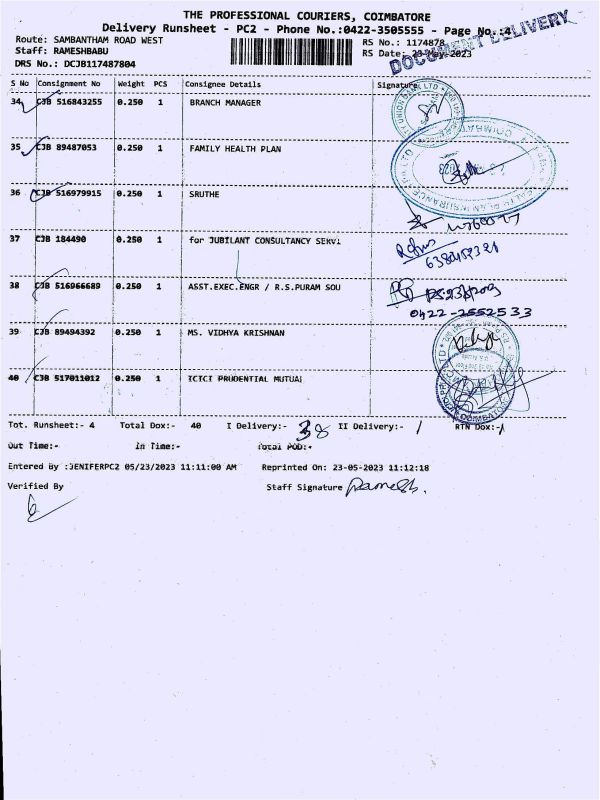 THE PROFESSIONAL COURIERS, COIMBATORE
Delivery Runsheet - PC2 - Phone No.:0422-3505555 - Page No.:4
Route: SAMBANTHAM ROAD WEST RS No.: 1174878
Staff: RAMESHBABU RS Date: 23-May-2023
DRS No.: DCJB117487804
DOCUMENT DELIVERY
S No Consignment No Weight PCS Consignee Details Signature
34 CJB 516843255 0.250 1 BRANCH MANAGER
35 CJB 89487053 0.250 1 FAMILY HEALTH PLAN
36 CJB 516979915 0.250 1 SRUTHE
37 CJB 184490 0.250 1 for JUBILANT CONSULTANCY SERVI
38 CJB 516966689 0.250 1 ASST.EXEC.ENGR / R.S.PURAM SOU
0422-2552533
39 CJB 89494392 0.250 1 MS. VIDHYA KRISHNAN
40 CJB 517011012 0.250 1 ICICI PRUDENTIAL MUTUAL
Tot. Runsheet:- 4 Total Dox:- 40 I Delivery:- 38 II Delivery:- 1 RTN Dox:- 1
Out Time:- In Time:- Total POD:-
Entered By :JENIFERPC2 05/23/2023 11:11:00 AM Reprinted On: 23-05-2023 11:12:18
Verified By Staff Signature Ramesh.